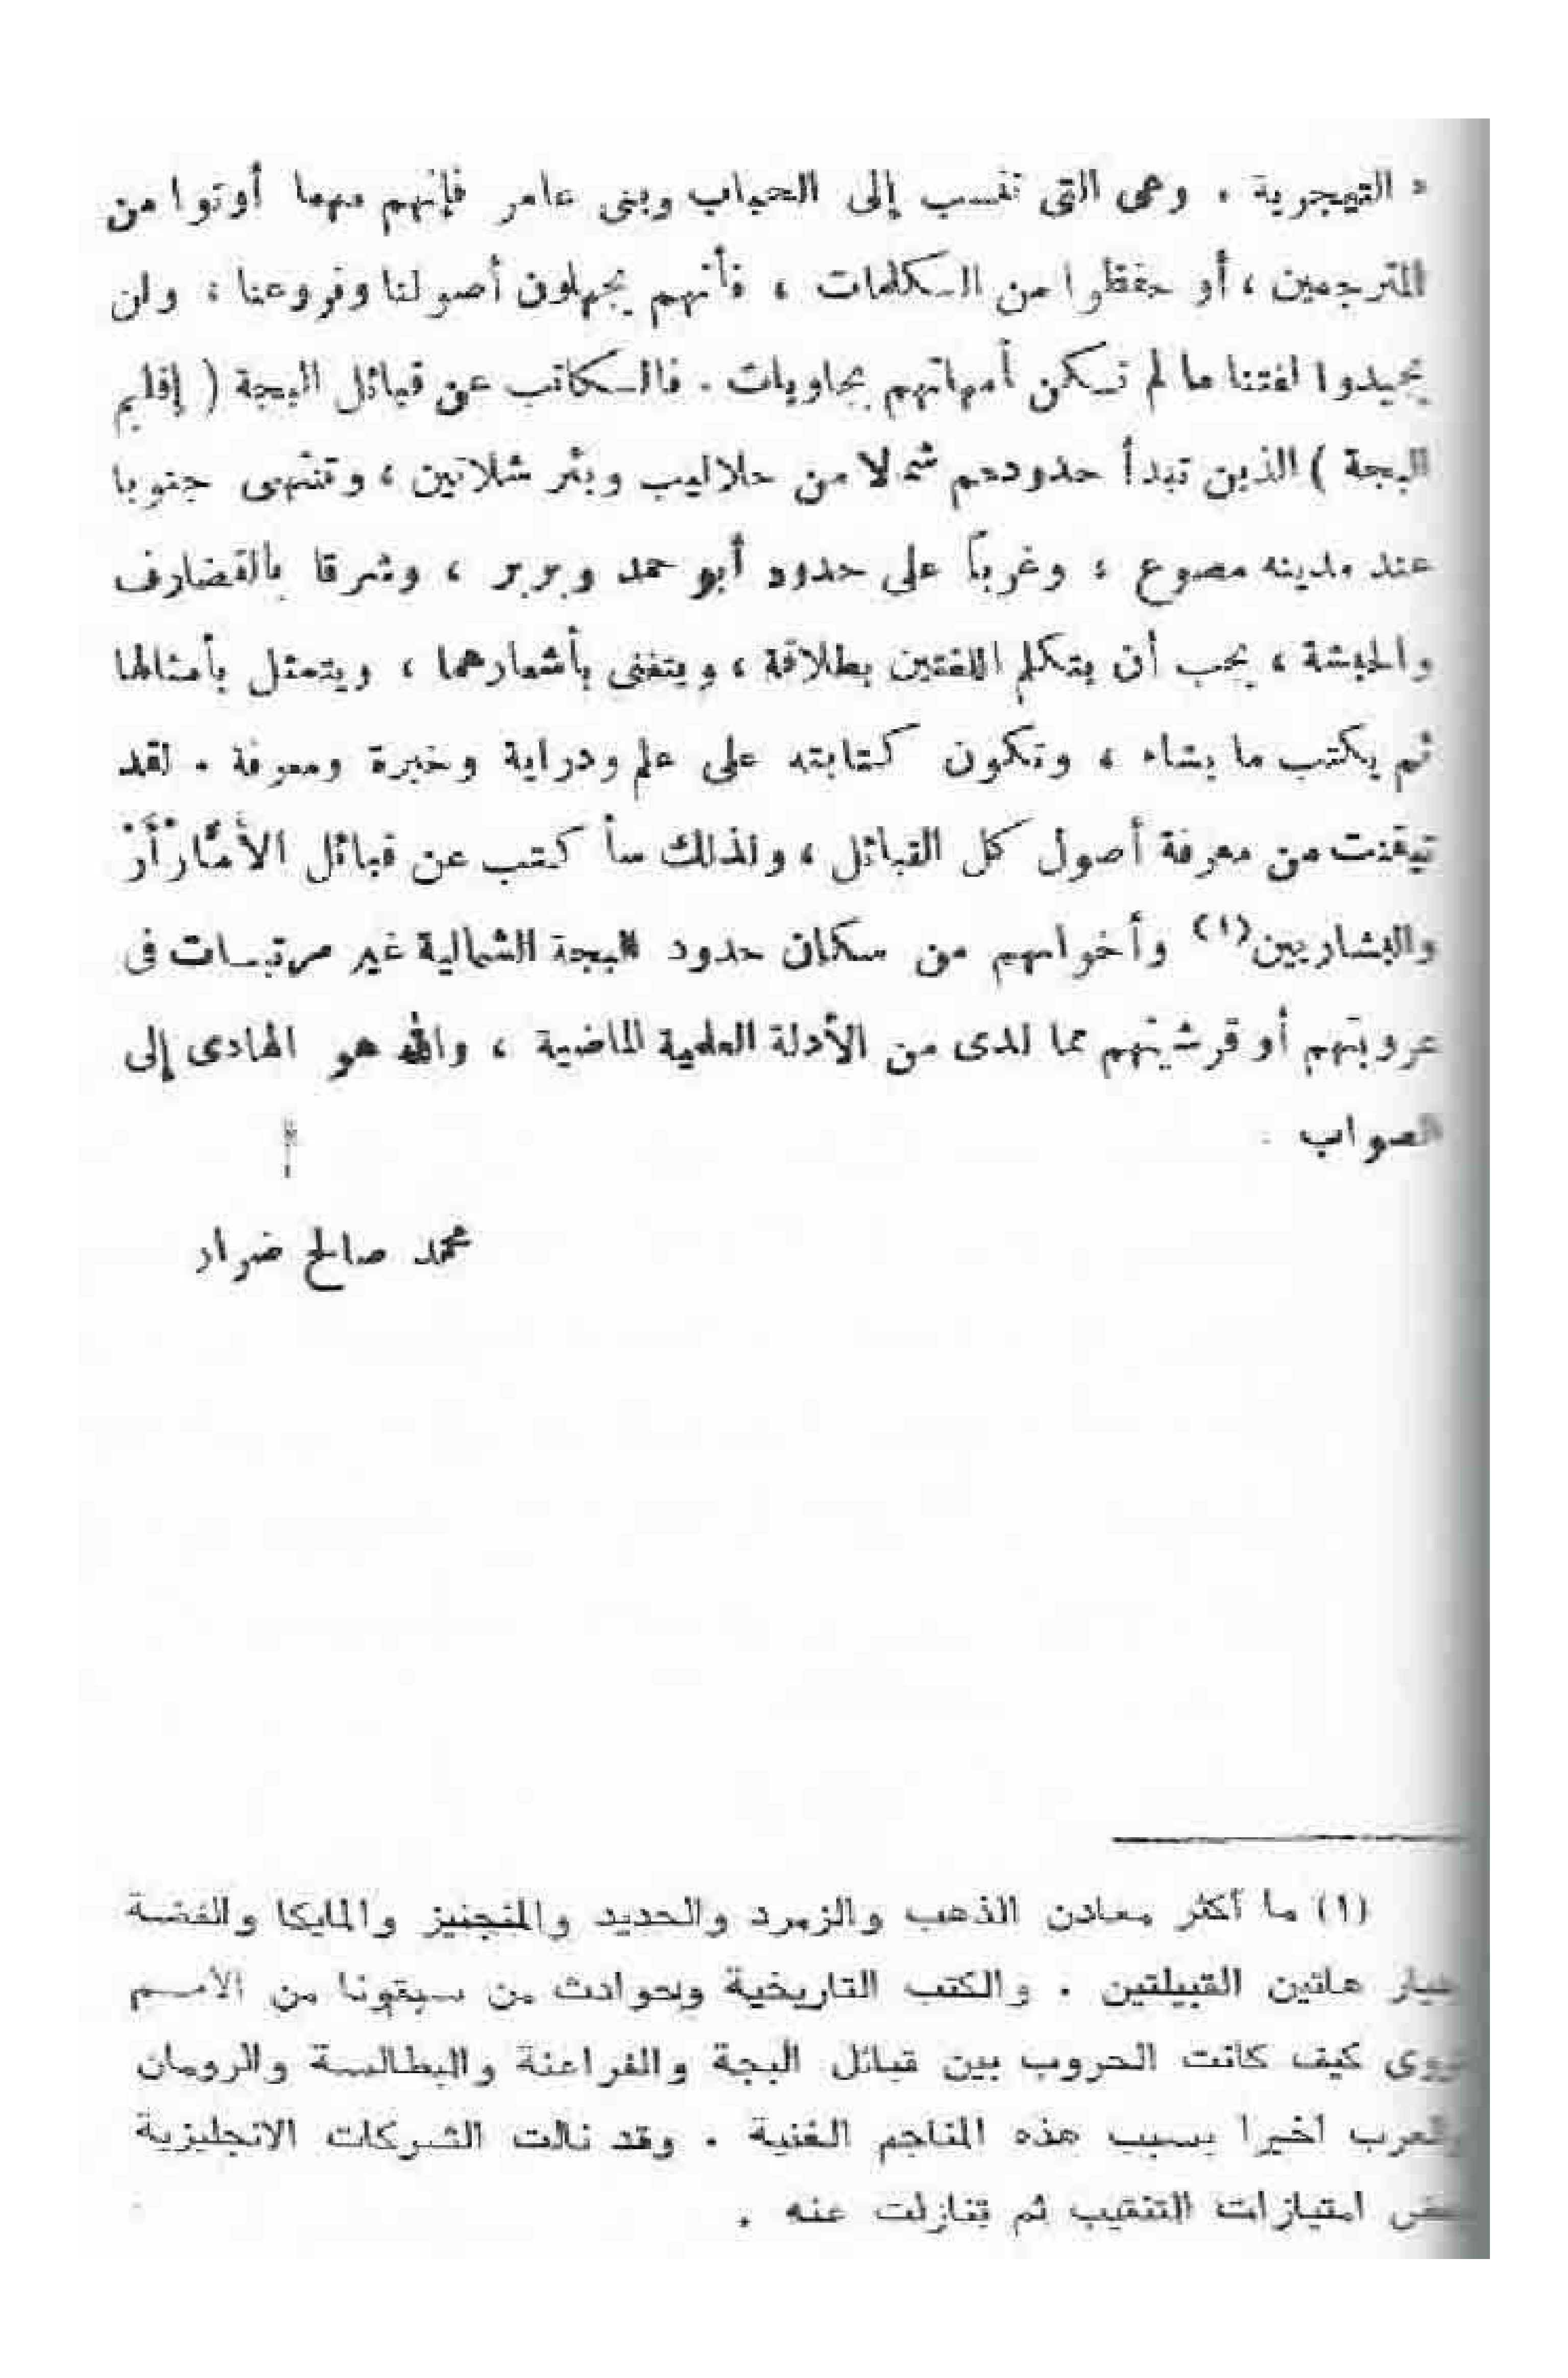 « التيجرية . وهى التى تنسب إلى الحباب وبنى عامر فإنهم مهما أوتوا من
المترجمين ، أو حفظوا من الكلمات ، فأنهم يجهلون أصولنا وفروعنا ، ولن
يجيدوا لغتنا ما لم تكن أمهاتهم بجاويات . فالكاتب عن قبائل البجة ( إقليم
البجة ) الذين تبدأ حدودهم شمالا من حلاليب وبئر شلاتين ، وتنتهى جنوبا
عند مدينه مصوع ، وغرباً على حدود أبو حمد وبربر ، وشرقا بالقضارف
والحبشة ، يجب أن يتكلم اللغتين بطلاقة ، ويتغنى بأشعارهما ، ويتمثل بأمثالها
ثم يكتب ما يشاء ، وتكون كتابته على علم ودراية وخبرة ومعرفة . لقد
تيقنت من معرفة أصول كل القبائل ، ولذلك سأ كتب عن قبائل الأمَّارْأَرْ
والبشاريين (١) وأخواتهم من سكان حدود البجة الشمالية غير مرتبسات فى
عروبتهم أو قرشيتهم مما لدى من الأدلة العلمية الماضية ، والله هو الهادى إلى
الصواب .
محمد صالح ضرار
(١) ما أكثر معادن الذهب والزمرد والحديد والمنجنيز والمايكا والفضة
هاتين القبيلتين . والكتب التاريخية وبحوادث من سبقونا من الأمم
تروى كيف كانت الحروب بين قبائل البجة والفراعنة والبطالسة والرومان
والعرب اخيرا بسبب هذه المناجم الغنية . وقد نالت الشركات الانجليزية
بعض امتيازات التنقيب ثم تنازلت عنه .